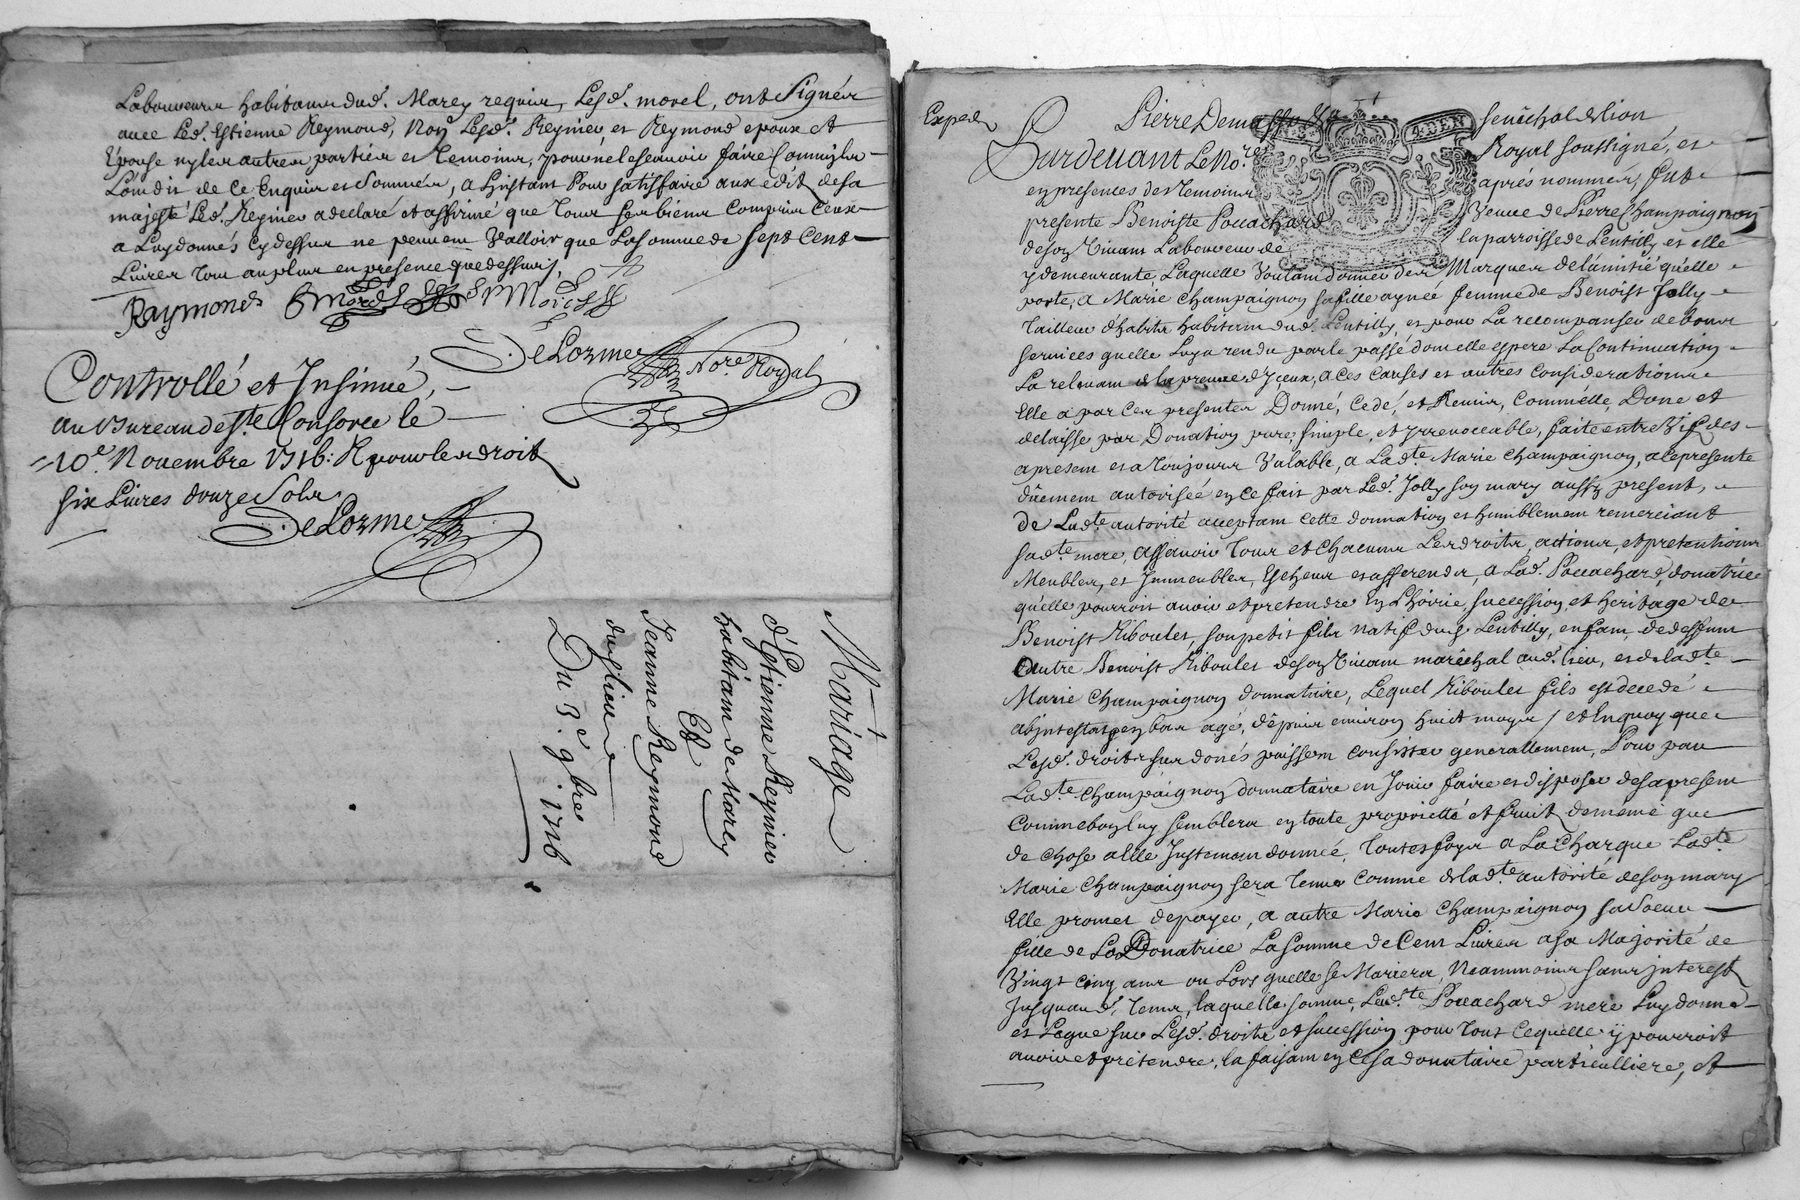 Laboureurs habitans dud. Marcy requis, Lesd. morel, ont Signés
avec Led. Estienne Reymond, Non Lesd. Reynier et Reymond epoux et
Epouse ny les autres parties et Temoins, pour ne le scavoir faire Comm'ils
L'ont dit de Ce Enquis et Sommés, a L'instant Pour satisfaire aux edit de sa
majesté Led. Reynier a declaré et affirmé que Tous ses biens Compris Ceux
a Luy donnés cy dessus ne peuvent Valloir que La somme de Sept Cent
Livres Tout au plus en presence que dessus.
Raymond
DeLorme No.re Royal
Controllé et Insinué,
au Bureau de S.te Consorce le
10.e Novembre 1716: R pour les droits
six Livres douze Sols
DeLorme
Mariage
d'Estienne Reynier
habitant de Marcy
Et
Jeanne Reymond
dud lieu
Du 3.e 9bre 1716
Exped
Pierre Dem senéchal de Lion
Pardevant Le No.re Royal soussigné, et
en presences des Temoins aprés nommés, fut
presente Benoiste Pocachard Veuve de Pierre Champaignon
de son Vivant Laboureur de la parroisse de Lentilly et elle
y demeurante Laquelle Voulant donner des Marques de l'amitié qu'elle
porte, a Marie Champaignon sa fille aynée femme de Benoist Jolly
Tailleur d'habits habitant dud. Lentilly, et pour La recompenser de bons
services quelle Luy a rendu par le passé dont elle espere La Continuation
La relevant de la preuve d'Iceux, a Ces Causes et autres Considerations
Elle a par Ces presentes Donné, Cedé, et Remis, Comm'elle Done et
delaisse par Donation pure simple, et Yrrevocable, faite entre Vifs des
apresent et a Toujours Valable, a Lad.te Marie Champaignon, a Ce presente
düement autorisée en ce fait par Led. Jolly son mary aussy present,
de Lad.te autorité acceptant cette donnation et humblement remerciant
sad.te mere, assavoir Tous et Chacuns Les droits, actions, et pretentions
Meubles, et Immeubles, Escheus et afferends, a Lad. Pocachard, donatrice
qu'elle pourroit avoir et pretendre En L'hoirie, succession, et heritage de
Benoist Riboulet, son petit fils natif dud. Lentilly, enfant de deffunt
autre Benoist Riboulet de son Vivant maréchal aud. lieu, et de lad.te
Marie Champaignon donnataire, Lequel Riboulet fils est decedé
abintestat en bas agé, d'epuis environ huit moys / et En quoy que
Lesd. droits sus donés puissent Consister generallement, Pour par
Lad.te Champaignon donnataire en Jouir faire et disposer des apresent
Comme bon luy semblera en toute proprietté et fruits de même que
de Chose a Elle Justement donnée, Toutes foys a La Charque Lad.te
Marie Champaignon sera Tenue Comme de lad.te autorité de son mary
Elle promet de payer, a autre Marie Champaignon sa Soeur
fille de La Donatrice La somme de Cent Livres a sa Majorité de
Vingt Cinq ans ou Lors quelle se Mariera, Neammoins sans interest
Jusqu'aud. Tems, laquelle somme, Lad.te Pocachard mere Luy donne
et Legue sur Lesd. droits et succession pour Tout Cequelle ÿ pourroit
avoir et pretendre, la faisant en Ce sa donataire particulliere, et